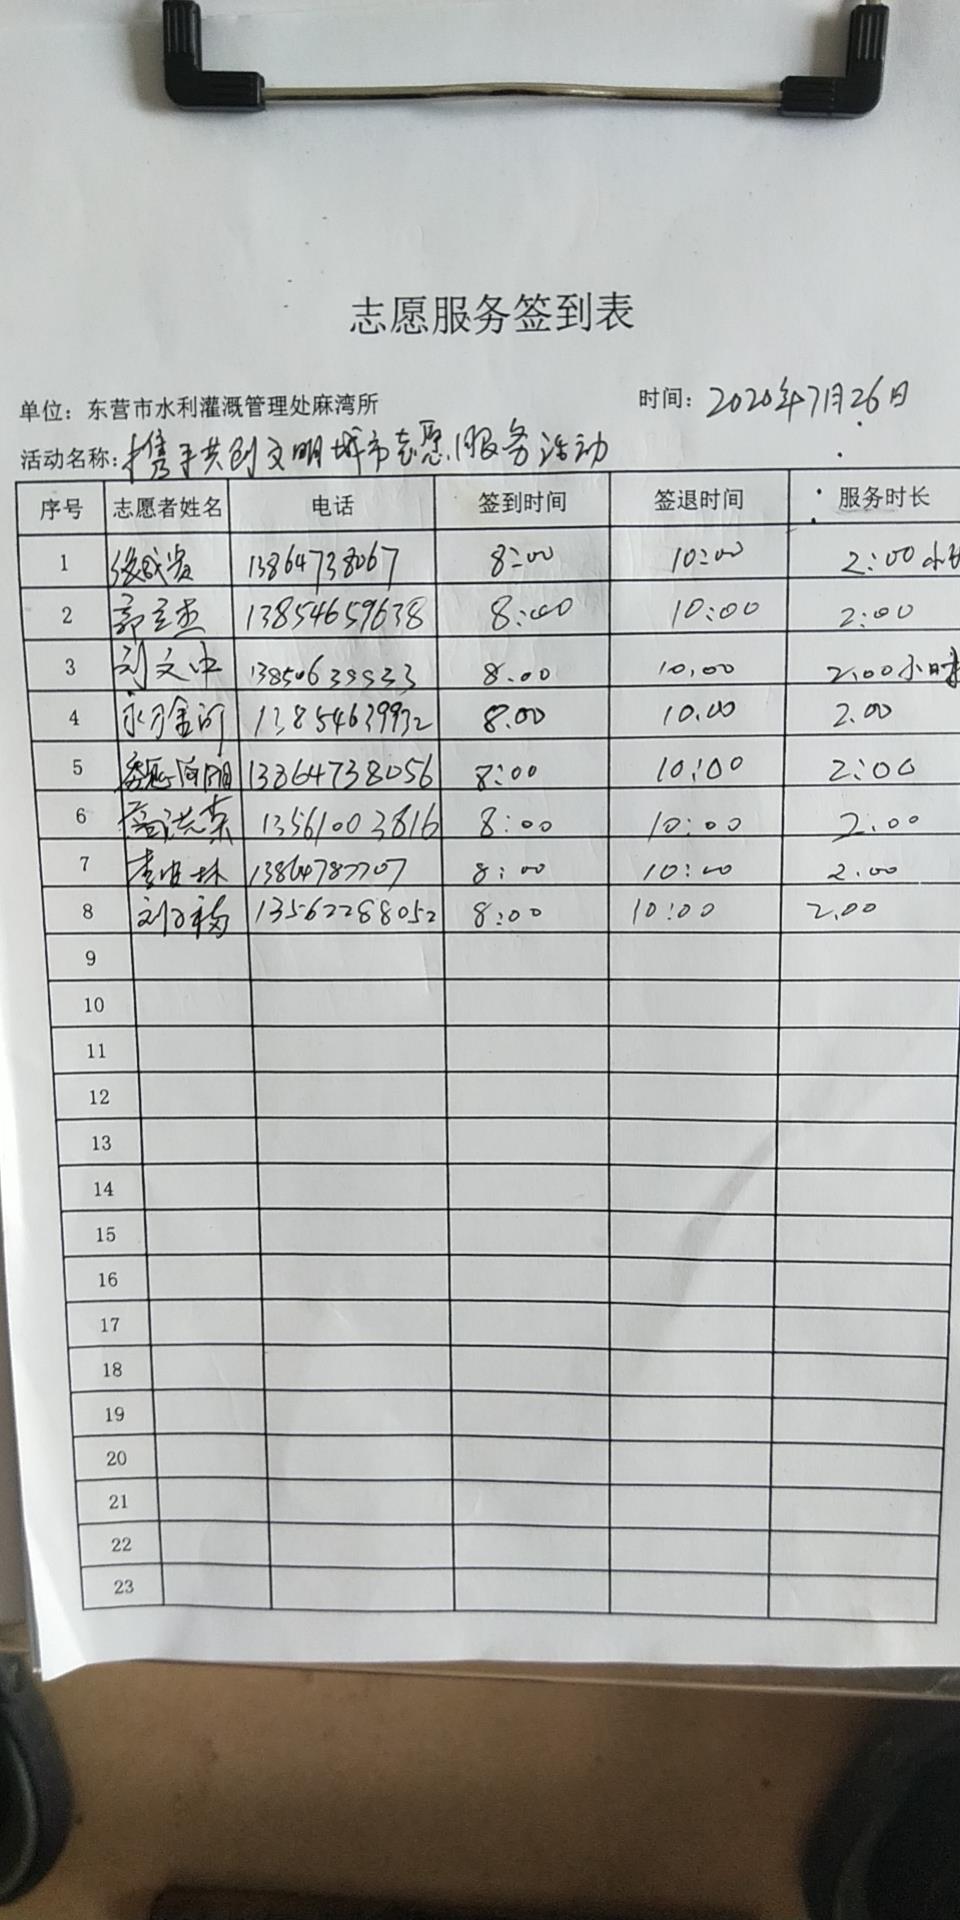 志愿服务签到表
单位：东营市水利灌溉管理处麻湾所 时间：2020年7月26日
活动名称：携手共创文明城市志愿服务活动
序号 志愿者姓名 电话 签到时间 签退时间 服务时长
1 13864738067 8:00 10:00 2:00小时
2 郭立杰 13854659638 8:00 10:00 2:00
3 刘文中 8.00 10.00 2.00小时
4 13854639932 8.00 10.00 2.00
5 13864738056 8:00 10:00 2:00
6 13561003816 8:00 10:00 2.00
7 13864787707 8:00 10:00 2.00
8 13562288052 8:00 10:00 2.00
9
10
11
12
13
14
15
16
17
18
19
20
21
22
23